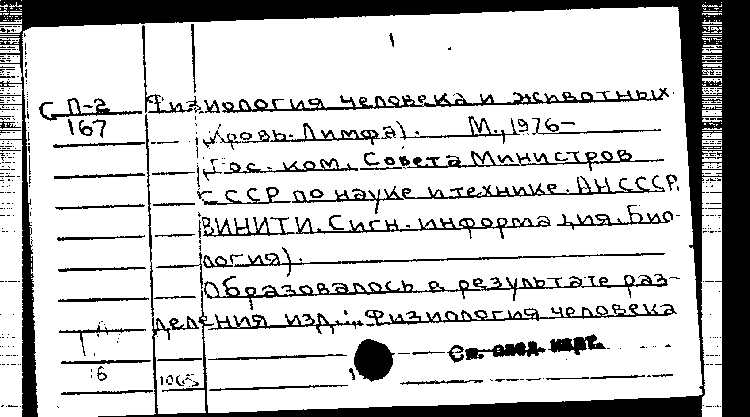 1
С П-2 Физиология человека и животных.
167 (Кровь. Лимфа). М., 1976-
(Гос. ком. Совета Министров
СССР по науке и технике. АН СССР.
ВИНИТИ. Сигн. информация. Био-
логия).
Образовалось в результате раз-
деления изд.: „Физиология человека
См. след. карт.
16 1065